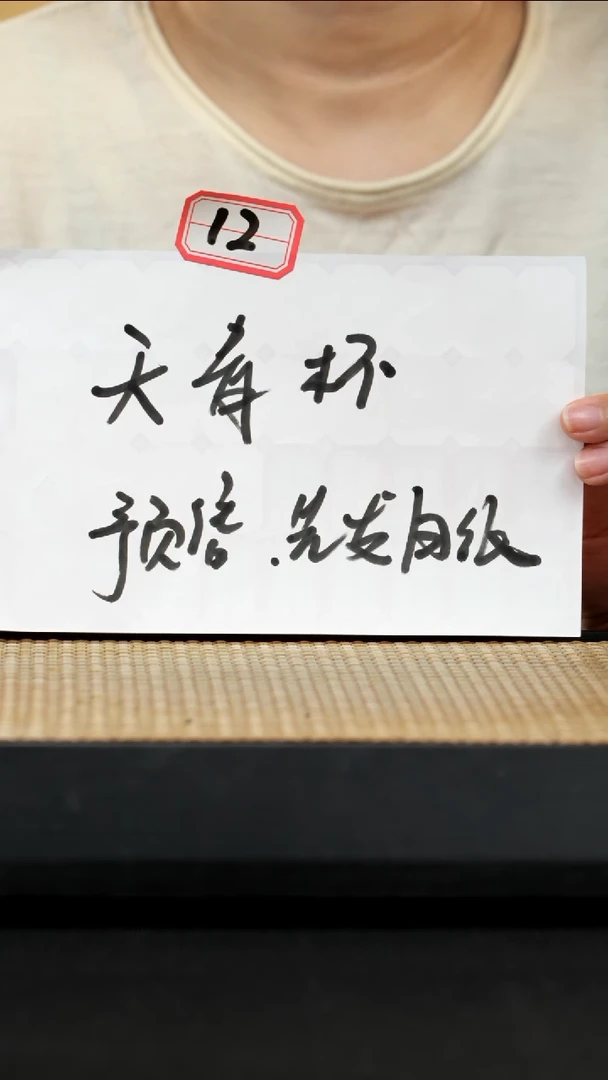 12
天青杯
预售.先发白纸